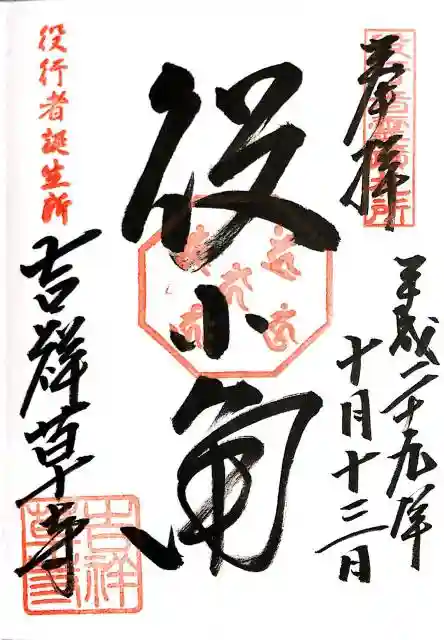 奉拝
役行者霊蹟札所
平成二十九年
十月十三日
役小角
役行者誕生所
吉祥草寺
吉祥
草寺